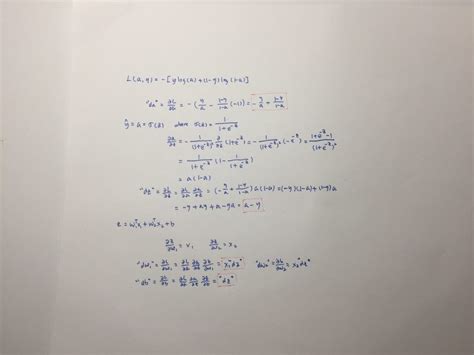 L(a,y) = -[y log(a) + (1-y) log(1-a)]
"da" = ∂L/∂a = -(y/a - (1-y)/(1-a) (-1)) = -y/a + (1-y)/(1-a)
ŷ = a = σ(z) where σ(z) = 1/(1+e^-z)
∂a/∂z = - 1/(1+e^-z)² ∂/∂z (1+e^-z) = - 1/(1+e^-z)² (-e^-z) = (1+e^-z-1)/(1+e^-z)²
= 1/(1+e^-z) (1 - 1/(1+e^-z))
= a(1-a)
"dz" = ∂L/∂z = ∂L/∂a ∂a/∂z = (-y/a + (1-y)/(1-a)) a(1-a) = (-y)(1-a) + (1-y)a
= -y + ay + a - ya = a - y
z = w₁ᵀx₁ + w₂ᵀx₂ + b
∂z/∂w₁ = x₁ ∂z/∂w₂ = x₂
"dw₁" = ∂L/∂w₁ = ∂L/∂a ∂a/∂z ∂z/∂w₁ = x₁"dz" "dw₂" = ∂L/∂w₂ = x₂"dz"
"db" = ∂L/∂b = ∂L/∂a ∂a/∂z ∂z/∂b = "dz"